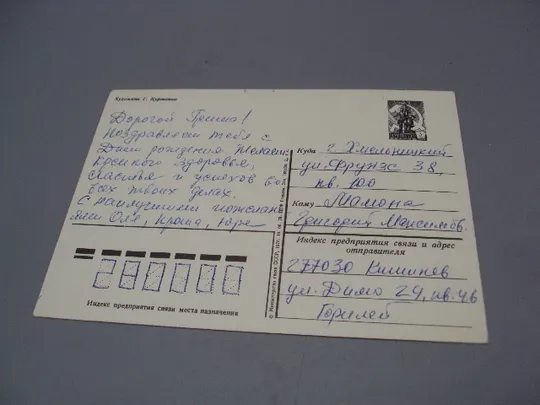 Художник Г. Куртенко
Дорогой Гриша!
Поздравляем тебя с
Днём рождения. Желаем
крепкого здоровья,
счастья и успехов во
всех твоих делах.
С наилучшими пожелани
ями Оля, Кроша, Юра
Индекс предприятия связи места назначения
Куда г. Хмельницкий
ул. Фрунзе 38
кв. 100
Кому Мамона
Григорий Максимов.
Индекс предприятия связи и адрес
отправителя
277030 Кишинев
ул. Димо 24, кв. 46
Горилей